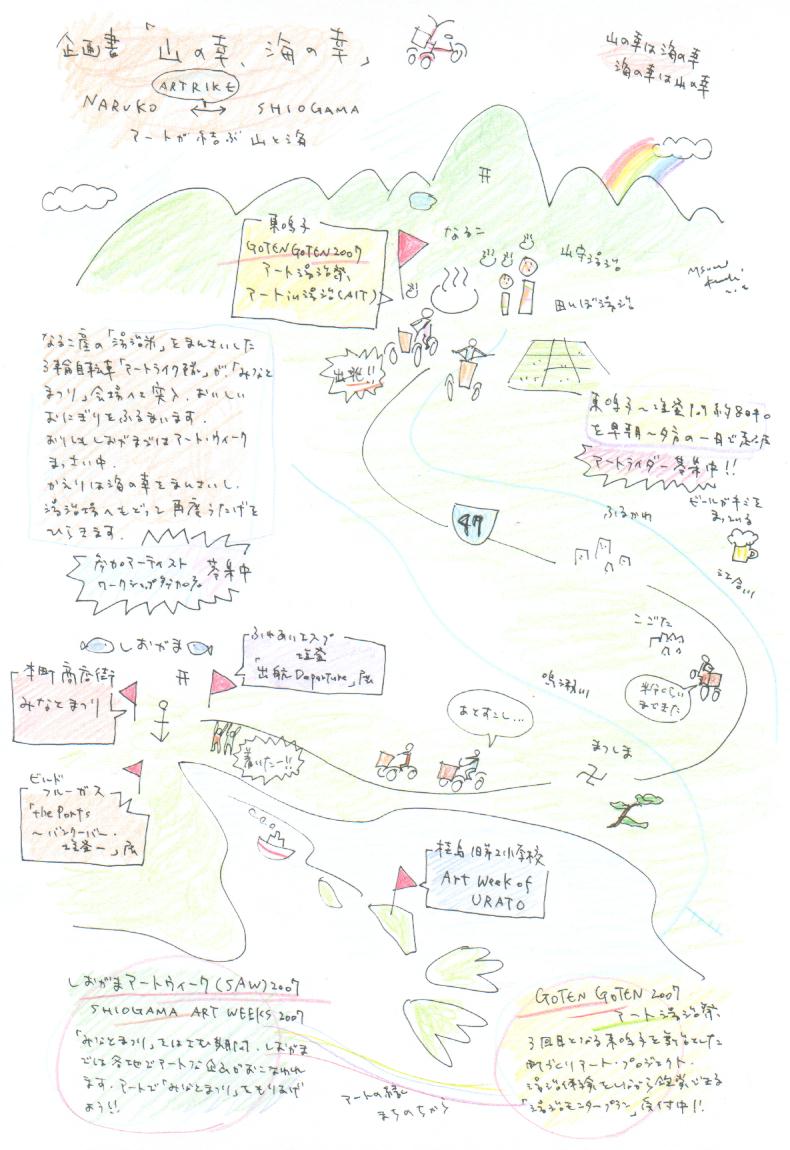 企画書「山の幸、海の幸」
ARTRIKE
NARUKO ⟷ SHIOGAMA
アートが結ぶ山と海
山の幸は海の幸
海の幸は山の幸
東鳴子
GOTEN GOTEN 2007
アート湯治祭、
アートin湯治(AIT)
なるこ
山守湯治
田んぼ湯治
出発!!
なるこ産の「湯治米」をまんさいした
3輪自転車「アートライク隊」が、「みなと
まつり」会場へと突入。おいしい
おにぎりをふるまいます。
おりしもしおがまではアート・ウィーク
まっさい中。
かえりは海の幸をまんさいし、
湯治場へもどって再度うたげを
ひらきます。
参加アーティスト
ワークショップ参加者
募集中
東鳴子〜塩釜間約80キロ
を早朝〜夕方の一日で走破
アートライダー募集中!!
ビールがキミを
まっている
47
ふるかわ
江合川
こごた
半分くらい
まできた
鳴瀬川
しおがま
本町商店街
みなとまつり
ふれあいエスプ
塩釜
「出航 Departure」展
あとすこし...
着いたー!!
まつしま
卍
ビルド
フルーガス
「the Ports
〜バンクーバー・
塩釜ー」展
桂島旧第2小学校
Art Week of
URATO
しおがまアートウィーク(SAW)2007
SHIOGAMA ART WEEKS 2007
「みなとまつり」をはさむ期間、しおがま
では各地でアートな企画がおこなわれ
ます。アートで「みなとまつり」をもりあげ
よう!!
アートの縁
まちのちから
GOTEN GOTEN 2007
アート湯治祭、
3回目となる東鳴子を舞台とした
町づくりアート・プロジェクト。
湯治体験をしながら鑑賞できる
「湯治モニタープラン」受付中!!